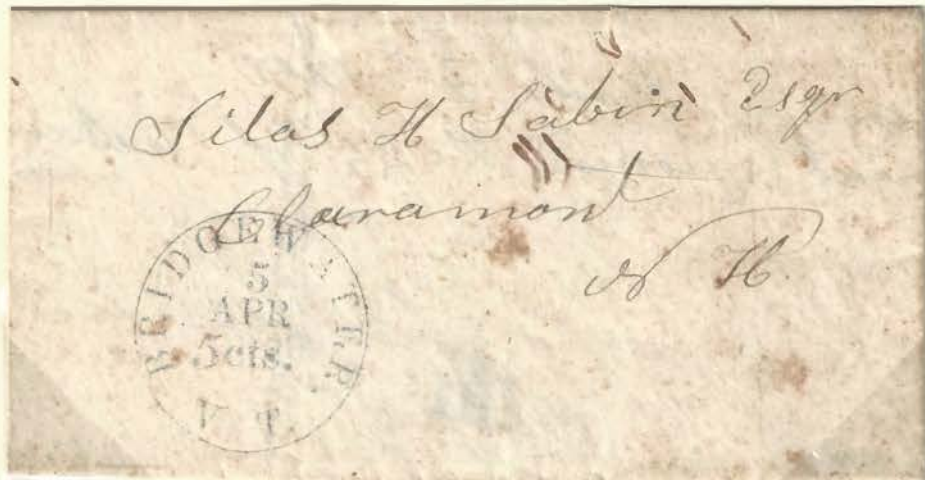 Silas H Sabin Esqr
Claramont
N H.
BRIDGEWATER.
5
APR
5cts.
VT.